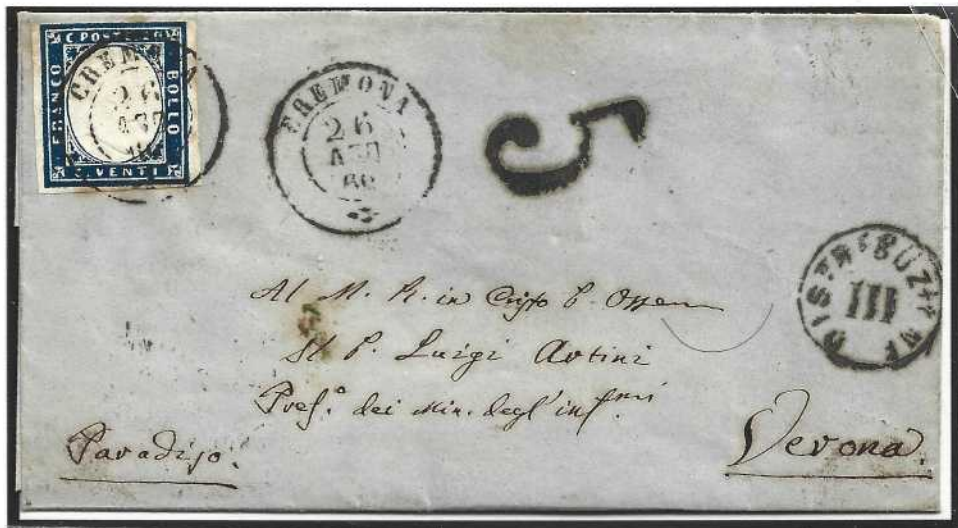 C POSTE 20
FRANCO
BOLLO
C. VENTI
CREMONA
26
AGO
CREMONA
26
AGO
60
5
DISTRIBUZIONE
III
Al M. R. in Cristo P.
Al P. Luigi Artini
Pref.º dei Min. degl' inf.mi
Paradiso.
Verona.